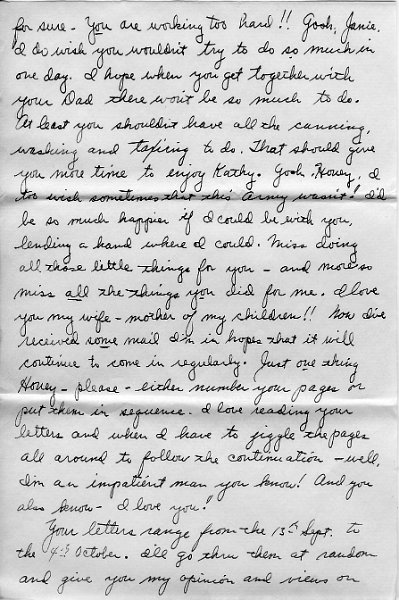 for sure - You are working too hard!! Gosh, Janie,
I do wish you wouldn't try to do so much in
one day. I hope when you get together with
your Dad there won't be so much to do.
At least you shouldn't have all the canning,
washing and to do. That should give
you more time to enjoy Kathy. Gosh, Honey, I
too wish sometimes that this Army wasn't! I'd
be so much happier if I could be with you,
lending a hand where I could. Miss doing
all those little things for you - and more so
miss all the things you did for me. I love
you my wife - mother of my children!! Now I've
received some mail I'm in hopes that it will
continue to come in regularly. Just one thing
Honey - please - either number your pages or
put them in sequence. I love reading your
letters and when I have to jiggle the pages
all around to follow the continuation - well,
I'm an impatient man you know! And you
also know - I love you!
Your letters range from the 13th Sept. to
the 4th October. I'll go thru them at random
and give you my opinion and views on